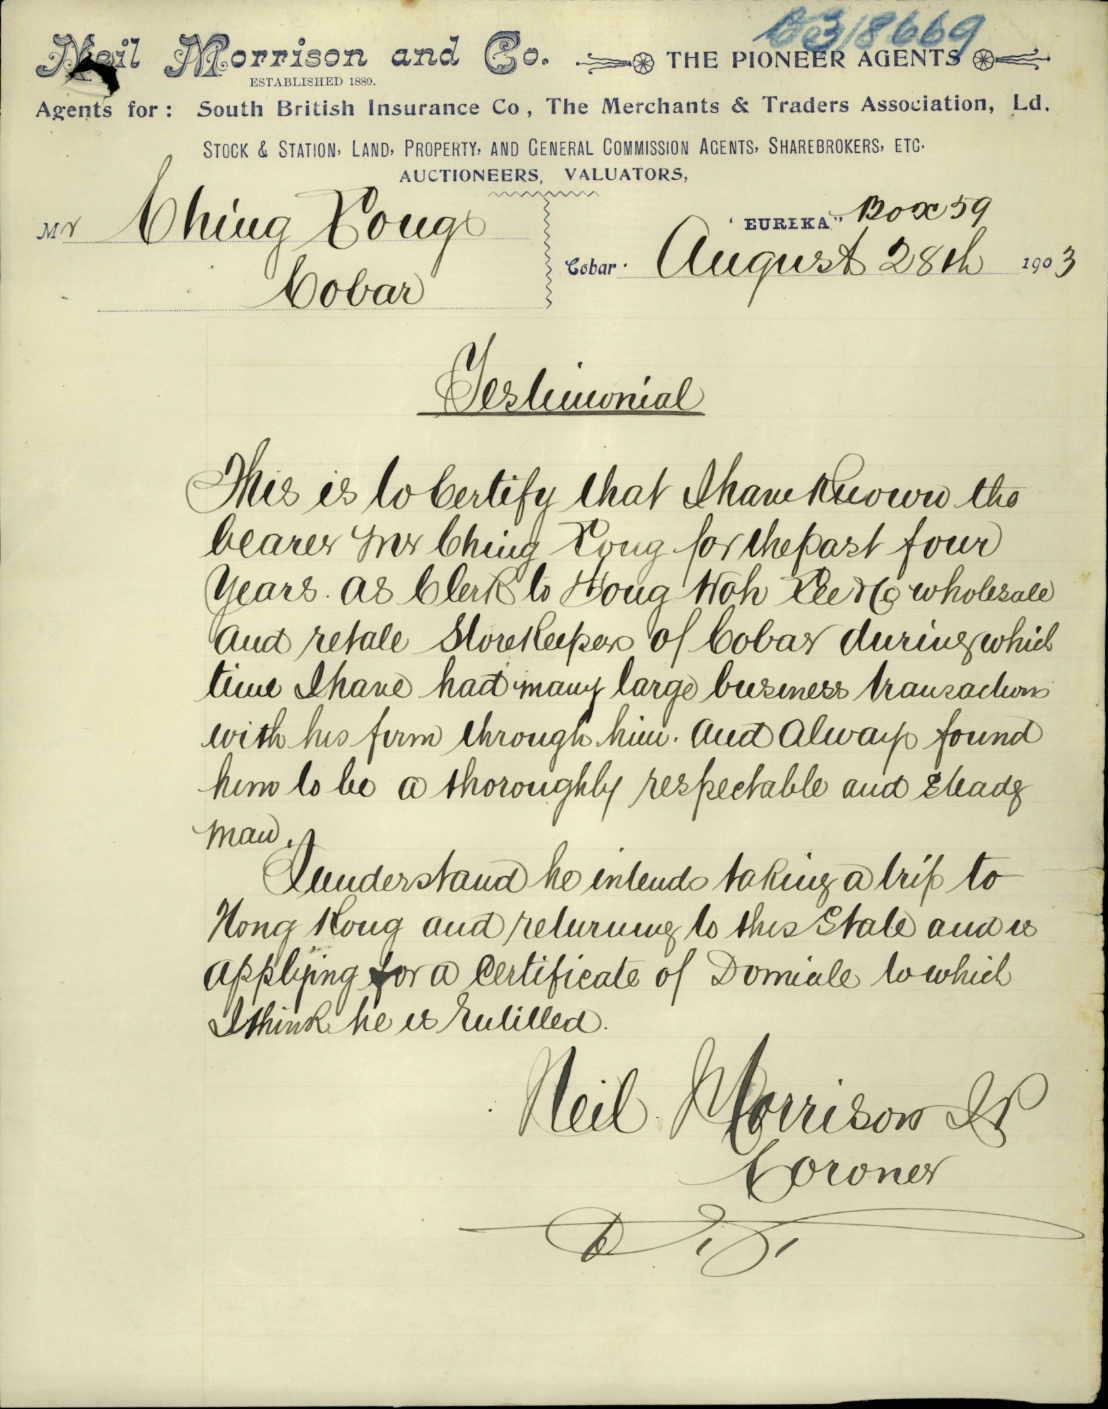 Neil Morrison and Co. THE PIONEER AGENTS
ESTABLISHED 1889.
Agents for: South British Insurance Co, The Merchants & Traders Association, Ld.
STOCK & STATION, LAND, PROPERTY, AND GENERAL COMMISSION AGENTS, SHAREBROKERS, ETC.
AUCTIONEERS, VALUATORS,
"EUREKA" Box 59
Mr Ching
Cobar. August 28th 1903
Cobar
Testimonial
This is to Certify that I have Known the
bearer Mr Ching for the past four
Years. as Clerk to wholesale
and retale StoreKeepers of Cobar during which
time I have had many large business transactions
with his firm through him. and Always found
him to be a thoroughly respectable and Steady
man.
I understand he intends taking a trip to
Hong Kong and returning to this State and is
applying for a Certificate of Domicile to which
I think he is Entitled.
Neil Morrison JP
Coroner